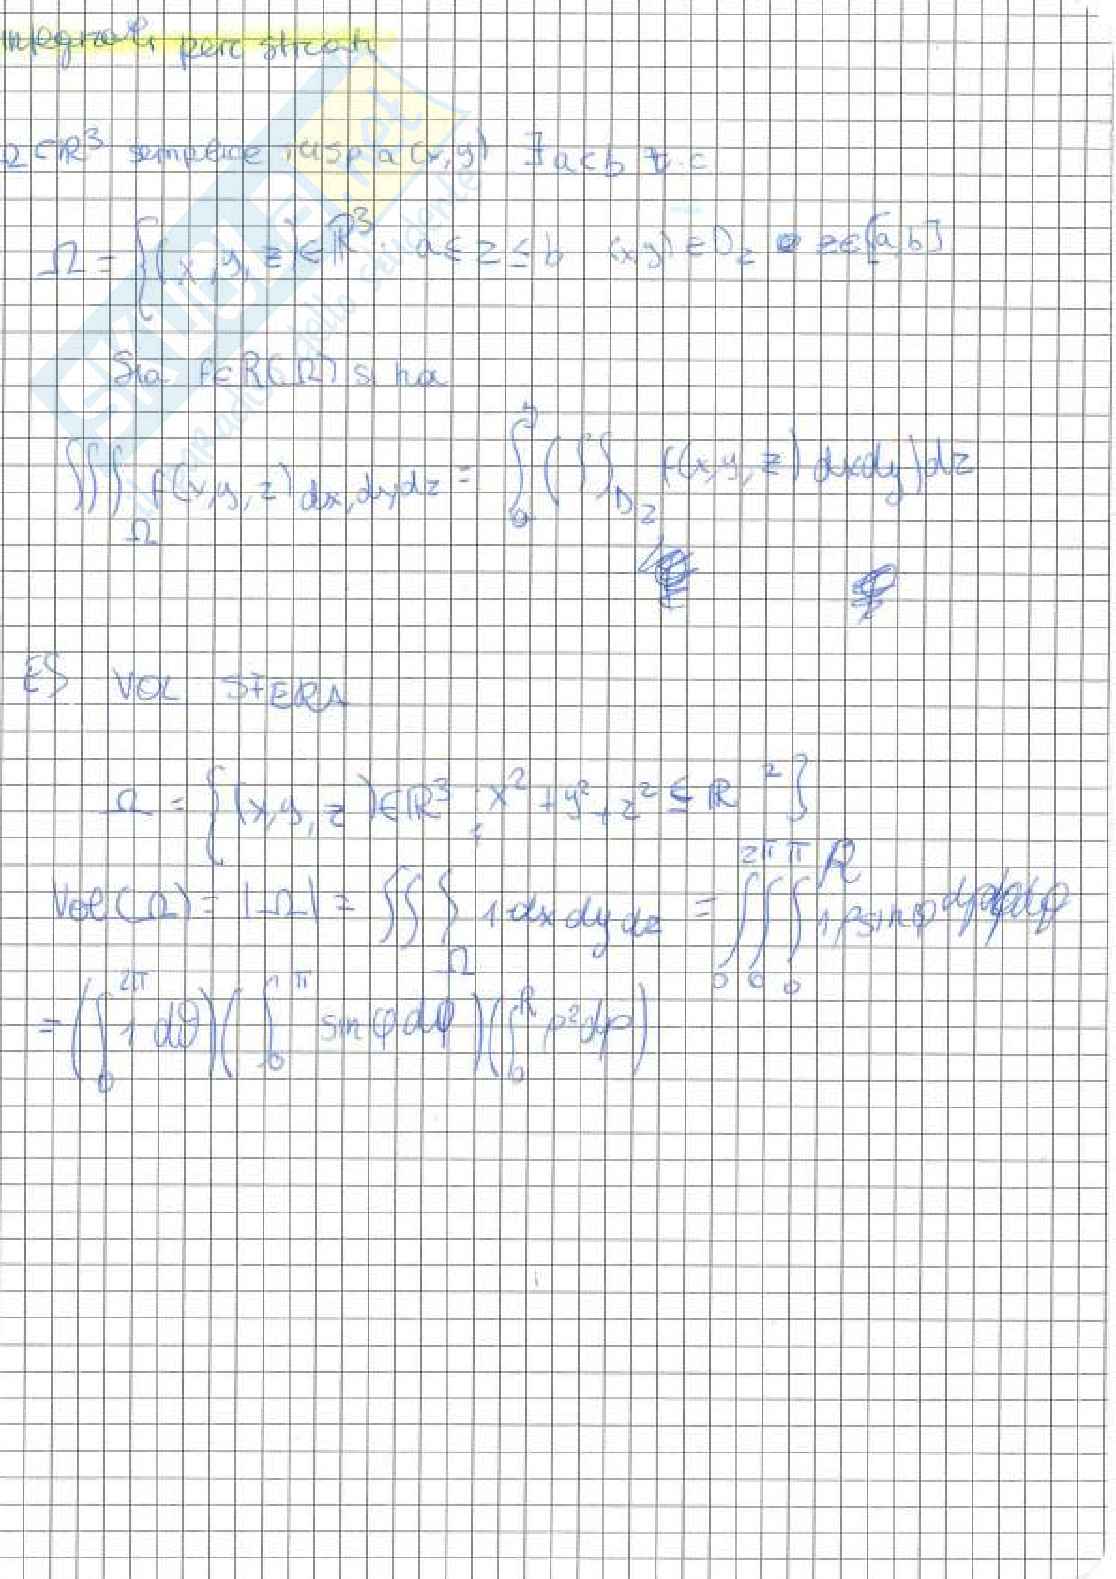 integrali per strati
Ω⊂ℝ³ semplice risp a (x,y) ∃ a<b t.c
Ω = {(x,y,z)∈ℝ³: a≤z≤b (x,y)∈D_z z∈[a,b]
Sia f∈R(Ω) si ha
∭_Ω f(x,y,z) dx,dy,dz = ∫ₐᵇ (∬_{D_z} f(x,y,z) dxdy) dz
ES VOL SFERA
Ω = {(x,y,z)∈ℝ³: x²+y²+z² ≤ ℝ²}
Vol(Ω) = |Ω| = ∭_Ω 1 dx dy dz = ∫₀^{2π} ∫₀^π ∫₀^R 1 ρ sinφ dρ dφ
= (∫₀^{2π} 1 dθ) (∫₀^π sinφ dφ) (∫₀^R ρ² dρ)
SKUOLA.net
il paradiso dello studente